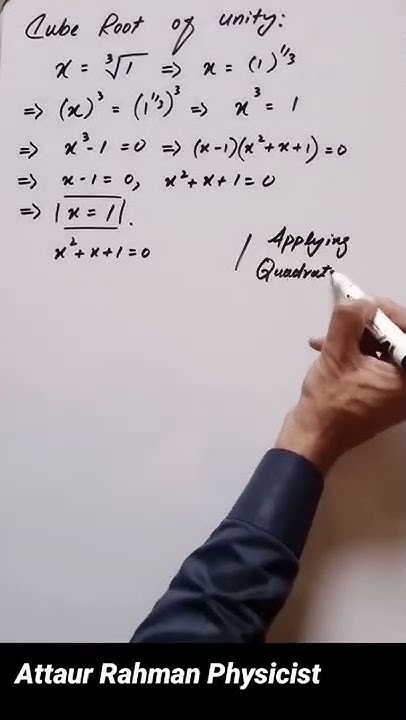 Cube Root of unity:
x = ∛1 => x = (1)^1/3
=> (x)³ = (1^1/3)³ => x³ = 1
=> x³ - 1 = 0 => (x-1)(x²+x+1) = 0
=> x - 1 = 0, x² + x + 1 = 0
=> |x = 1|.
x² + x + 1 = 0
| Applying
Quadrat
Attaur Rahman Physicist